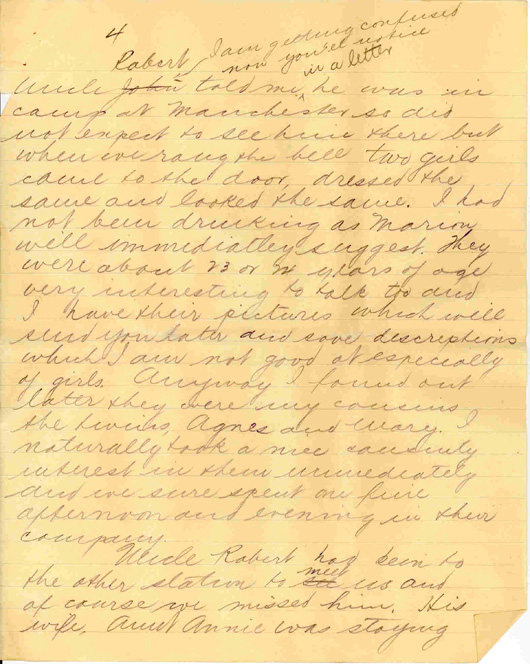 4
I am getting confused
now you'll notice
Robert in a letter
Uncle John told me he was in
camp at Manchester so did
not expect to see him there but
when we rang the bell two girls
came to the door, dressed the
same and looked the same. I had
not been drinking as Marion
will immediatley suggest. They
were about 23 or years of age
very interesting to talk to and
I have their pictures which will
send you later and save descriptions
which I am not good at especially
of girls. Anyway I found out
later they were my cousins,
the twins, Agnes and Mary. I
naturally took a nice cousinly
interest in them immediately
and we sure spent one fine
afternoon and evening in their
company.
Uncle Robert had been to
meet
the other station to see us and
of course we missed him. His
wife, Aunt Annie was staying